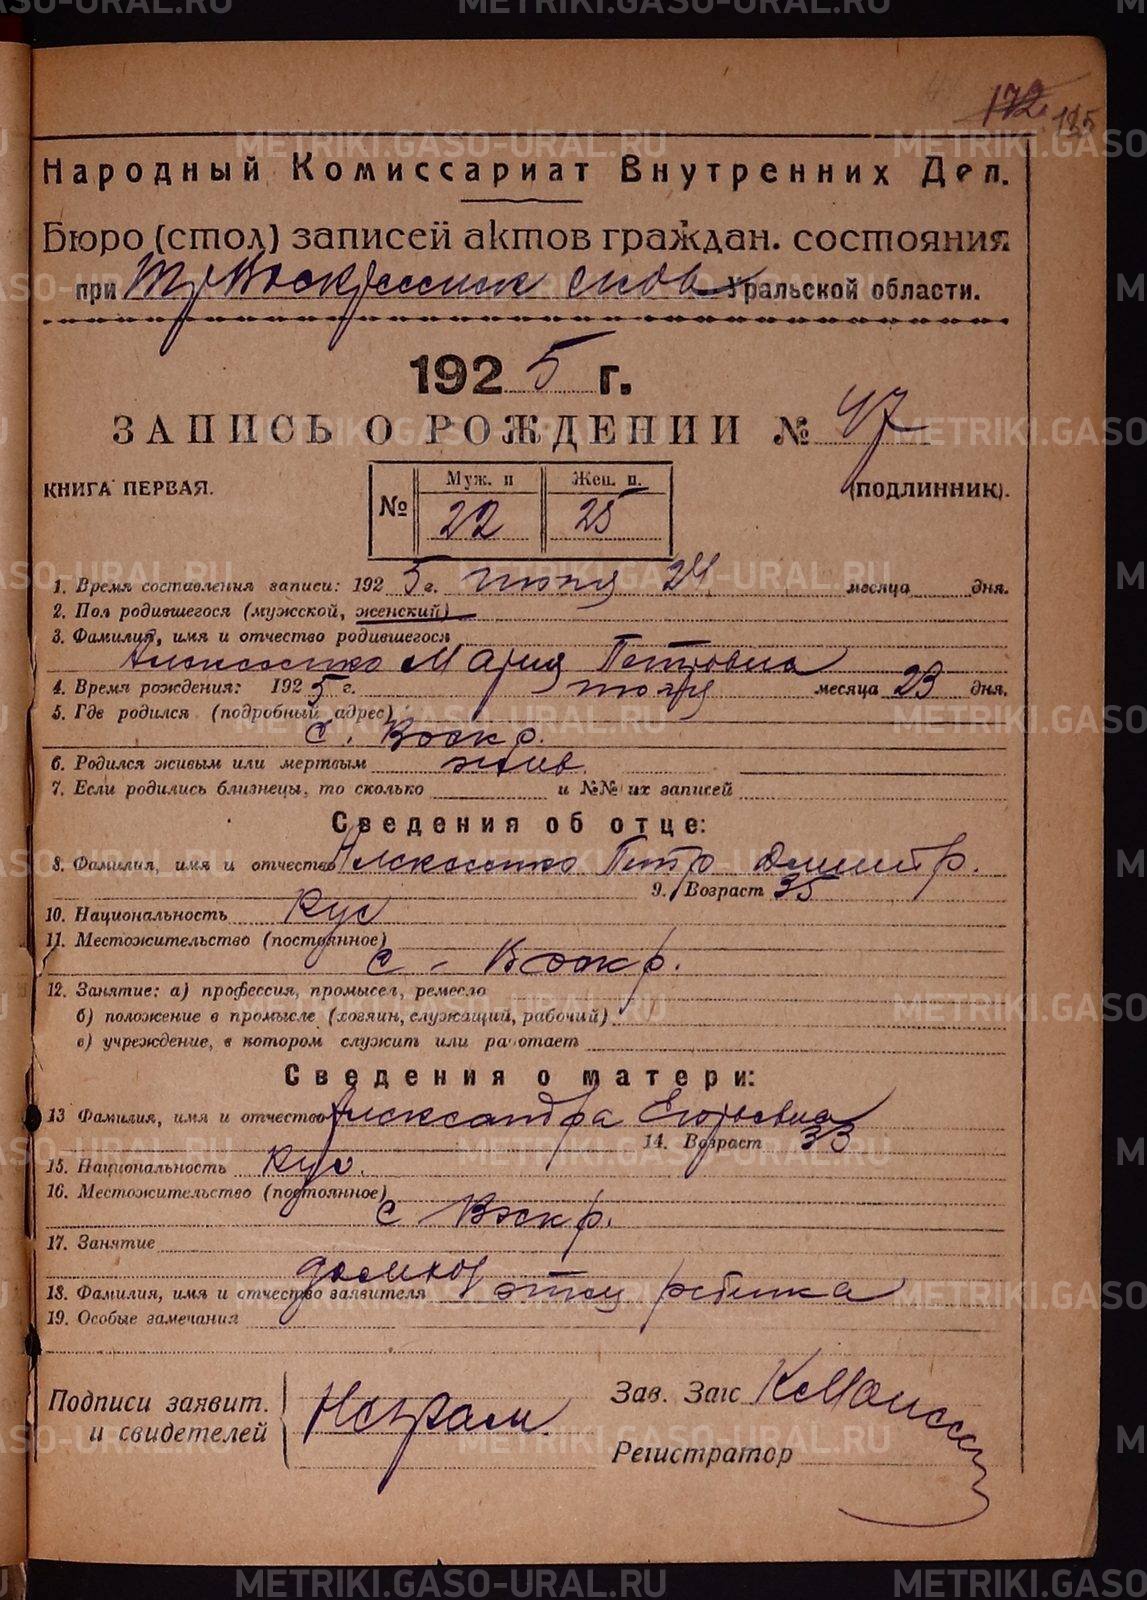 172 125
Народный Комиссариат Внутренних Дел.
Бюро (стол) записей актов граждан. состояния
при Уральской области.
1925 г.
ЗАПИСЬ О РОЖДЕНИИ № 47
КНИГА ПЕРВАЯ.
(ПОДЛИННИК).
№ Муж. п Жен. п.
22 25
1. Время составления записи: 1925 г. июля 24 месяца дня.
2. Пол родившегося (мужской, женский)
3. Фамилия, имя и отчество родившегося
Мария Петровна
4. Время рождения: 1925 г. июля месяца 23 дня.
5. Где родился (подробный адрес)
с. Воскр.
6. Родился живым или мертвым жив
7. Если родились близнецы, то сколько и №№ их записей
Сведения об отце:
8. Фамилия, имя и отчество Петр Димитр.
9. Возраст 35
10. Национальность Рус
11. Местожительство (постоянное)
с - Воскр.
12. Занятие: а) профессия, промысел, ремесло
б) положение в промысле (хозяин, служащий, рабочий)
в) учреждение, в котором служит или работает
Сведения о матери:
13 Фамилия, имя и отчество Александра Егоровна
14. Возраст 33
15. Национальность Рус.
16. Местожительство (постоянное)
с Воскр.
17. Занятие
домхоз
18. Фамилия, имя и отчество заявителя отец ребенка
19. Особые замечания
Подписи заявит.
и свидетелей
Неграм.
Зав. Загс
Регистратор
METRIKI.GASO-URAL.RU